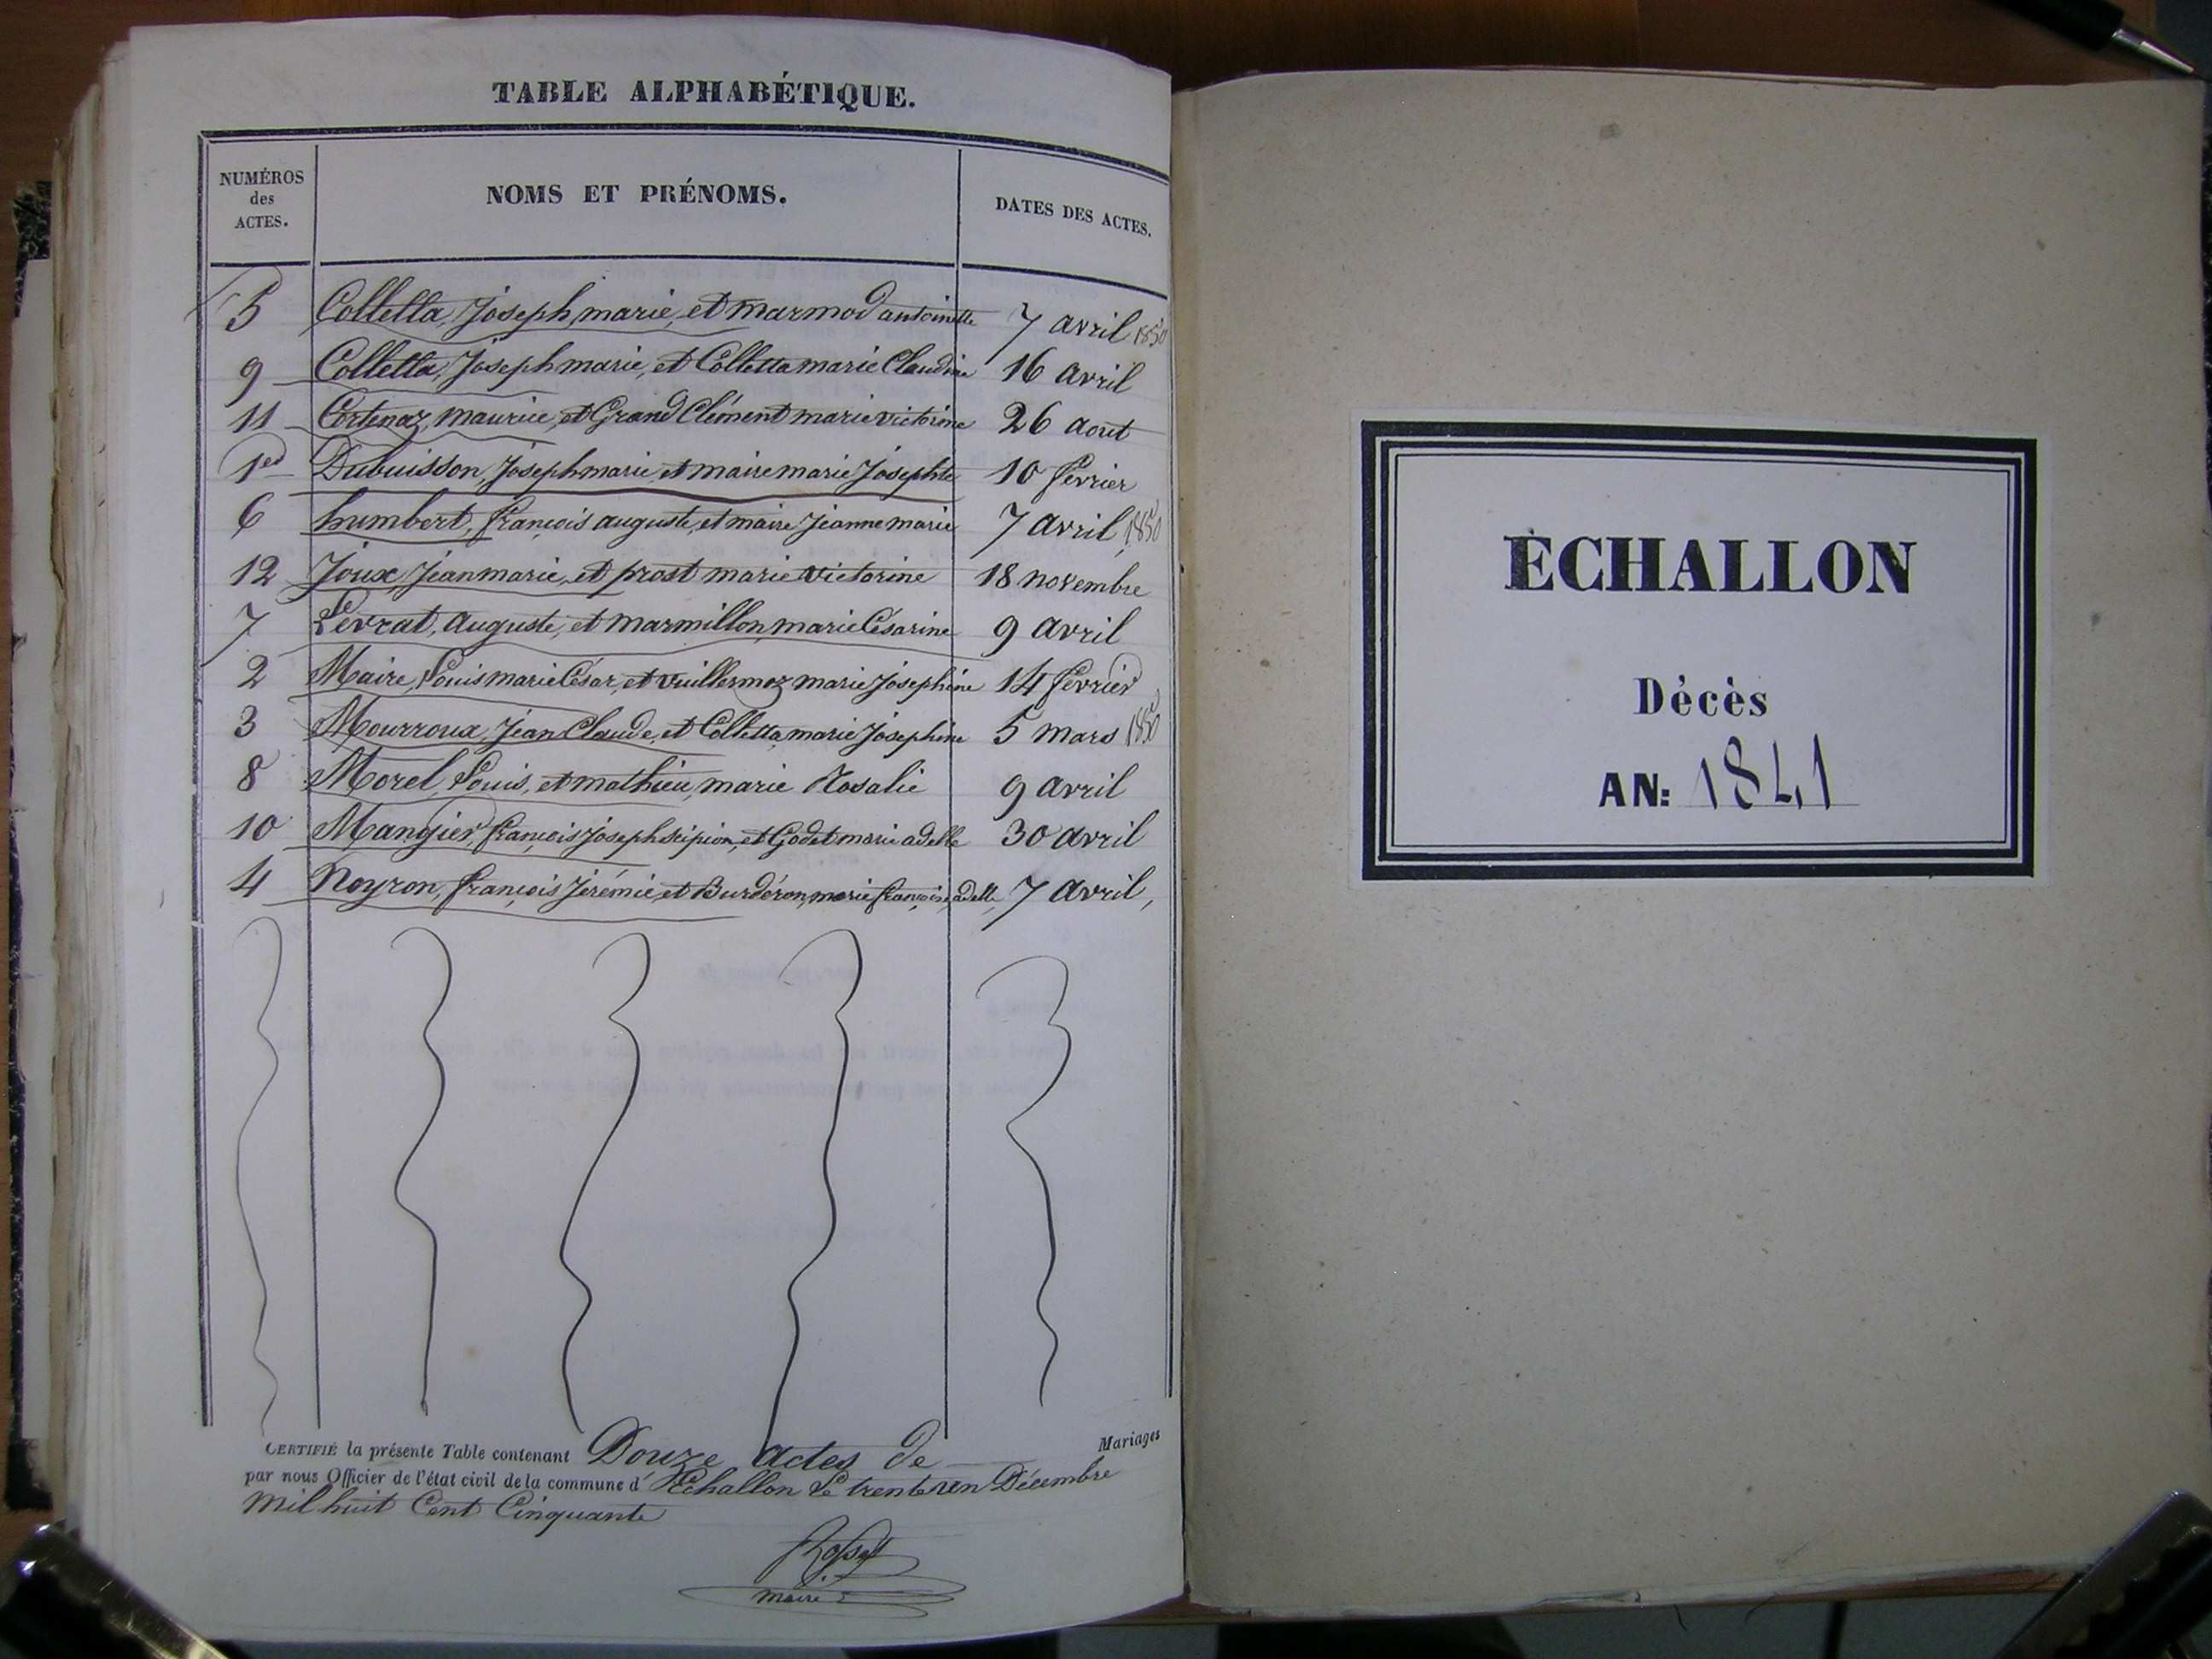 TABLE ALPHABÉTIQUE.
NUMÉROS des ACTES. NOMS ET PRÉNOMS. DATES DES ACTES.
5 Colletta, Joseph marie, et marmod antoinette 7 avril 1850
9 Colletta, Joseph marie, et Colletta marie Claudine 16 avril
11 Cortenaz, maurice, et Grand Clément marie victorine 26 aout
1er Dubuisson, Joseph marie, et maire marie Josephte 10 février
6 humbert, françois auguste, et maire Jeanne marie 7 avril, 1850
12 Joux, Jean marie, et prost marie victorine 18 novembre
7 Levrat, Auguste, et marmillon, marie Césarine 9 avril
2 Maire, Louis marie César, et vuillermoz marie Joséphine 14 février
3 Mourroux, Jean Claude, et Colletta, marie Joséphine 5 mars 1850
8 Morel, Louis, et mathieu, marie Rosalie 9 avril
10 Mangier, françois Joseph scipion, et Godet marie adelle 30 avril
4 Noyron, françois Jérémie, et Burdéron, marie françoise, adelle, 7 avril,
CERTIFIÉ la présente Table contenant Douze actes de Mariages
par nous Officier de l'état civil de la commune d' Echallon Le trente un Décembre
mil huit Cent Cinquante
maire
ÉCHALLON
Décès
AN: 1841